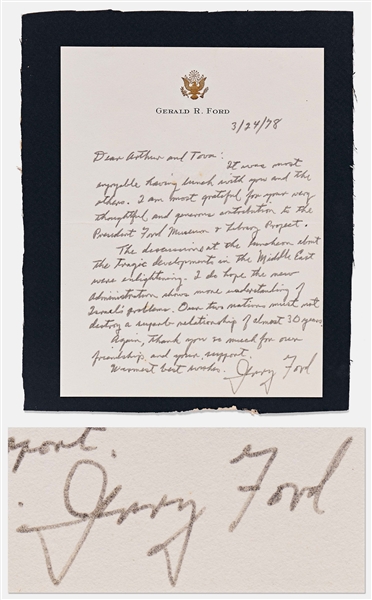 GERALD R. FORD
3/24/78
Dear Arthur and Tova:
It was most
enjoyable having lunch with you and the
others. I am most grateful for your very
thoughtful and generous contribution to the
President Ford Museum & Library Project.
The discussions at the luncheon about
the tragic developments in the Middle East
were enlightening. I do hope the new
Administration shows more understanding of
Israel's problems. Our two nations must not
destroy a superb relationship of almost 30 years.
Again, thank you so much for our
friendship and your support.
Warmest best wishes. Jerry Ford
pport.
Jerry Ford